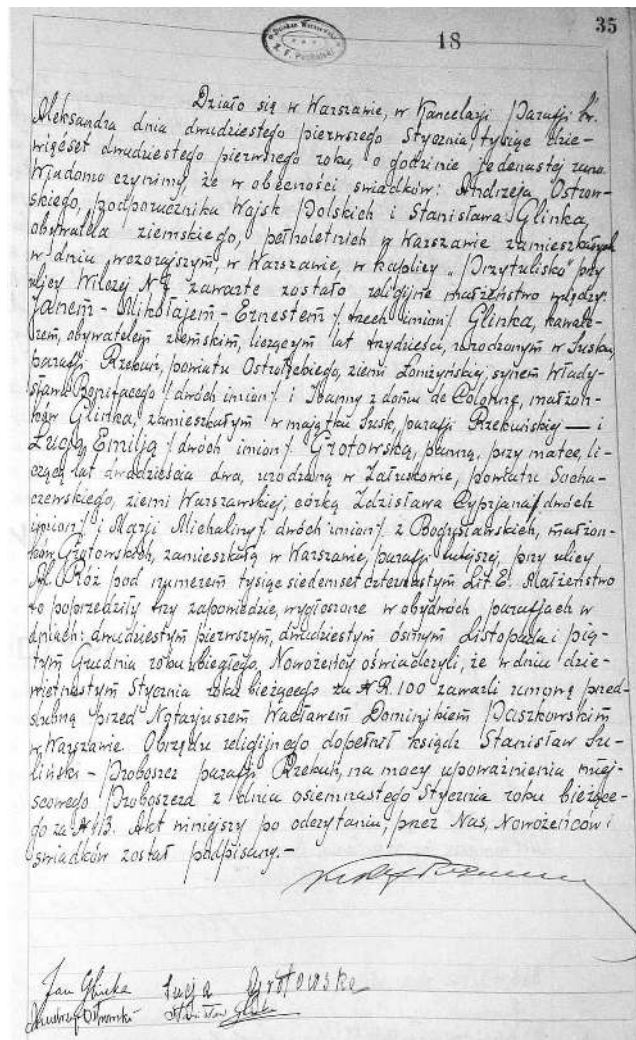 35
18
Działo się w Warszawie, w Kancelarji Parafji Św.
Aleksandra dnia dwudziestego pierwszego Stycznia, tysiąc dzie-
więćset dwudziestego pierwszego roku, o godzinie jedenastej rano.
Wiadomo czynimy, że w obecności świadków: Andrzeja Ostrow-
skiego, podporucznika Wojsk Polskich i Stanisława Glinka,
obywatela ziemskiego, pełnoletnich w Warszawie zamieszkałych
w dniu wczorajszym, w Warszawie, w kaplicy „Przytulisko" przy
ulicy Wilczej № 7 zawarte zostało religijne małżeństwo między:
Janem-Mikołajem-Ernestem /trzech imion/ Glinka, kawale-
rem, obywatelem ziemskim, liczącym lat trzydzieści, urodzonym w Susku,
parafji Rzekuń, powiatu Ostrołęckiego, ziemi Łomżyńskiej, synem Włady-
sława Bonifacego /dwóch imion/ i Joanny z domu de Colonge, małżon-
ków Glinka, zamieszkałym w majątku Susk, parafji Rzekuńskiej — i
Łucją Emilją /dwóch imion/ Grotowską, panną, przy matce, li-
czącą lat dwadzieścia dwa, urodzoną w Załuskowie, powiatu Socha-
czewskiego, ziemi Warszawskiej, córką Zdzisława Cyprjana /dwóch
imion/ i Marji Michaliny /dwóch imion/ z Bogusławskich, małżon-
ków Grotowskich, zamieszkałą w Warszawie, parafji tutejszej, przy ulicy
Al. Róż pod numerem tysiąc siedemset czternastym Lit. E. Małżeństwo
to poprzedziły trzy zapowiedzie, wygłoszone w obydwóch parafjach w
dniach: dwudziestym pierwszym, dwudziestym ósmym Listopada i pią-
tym Grudnia roku ubiegłego. Nowożeńcy oświadczyli, że w dniu dzie-
więtnastym Stycznia roku bieżącego za NR. 100 zawarli umowę przed-
ślubną przed Notaryuszem Wacławem Dominikiem Paszkowskim
w Warszawie. Obrzędu religijnego dopełnił ksiądz Stanisław Su-
liński - Proboszcz parafji Rzekuń, na mocy upoważnienia miej-
scowego Proboszcza z dnia osiemnastego Stycznia roku bieżące-
go za № 413. Akt niniejszy po odczytaniu, przez Nas, Nowożeńców i
świadków został podpisany.-
Jan Glinka Łucja Grotowska
Andrzej Ostrowski Stanisław Glinka